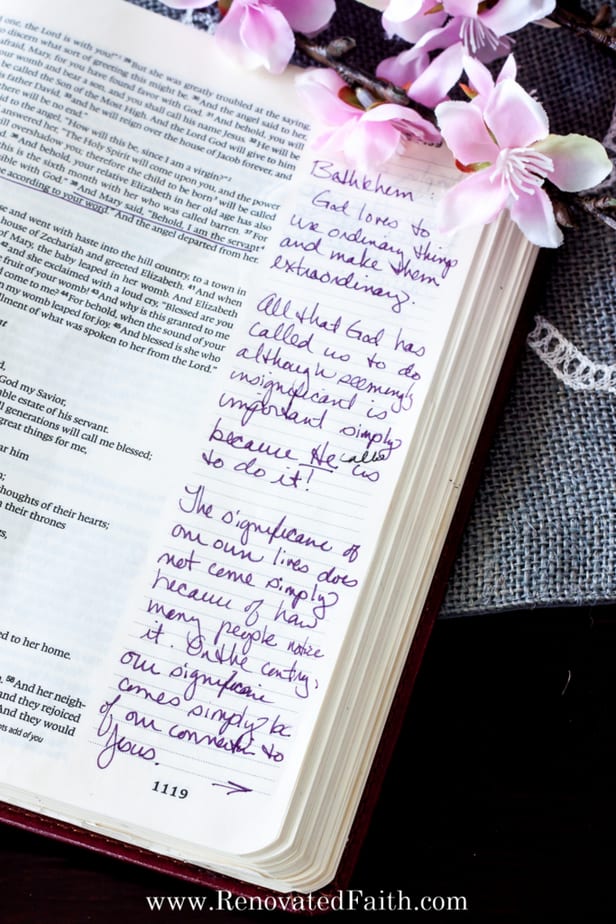 one, the Lord is with you!" 29 But she was greatly troubled at the saying,
to discern what sort of greeting this might be. 30 And the angel said to her,
afraid, Mary, for you have found favor with God. 31 And behold, you will
your womb and bear a son, and you shall call his name Jesus. 32 He will be
be called the Son of the Most High. And the Lord God will give to him
his father David, 33 and he will reign over the house of Jacob forever, and
there will be no end."
said to the angel, "How will this be, since I am a virgin?"
answered her, "The Holy Spirit will come upon you, and the power
overshadow you; therefore the child to be born will be called
36 And behold, your relative Elizabeth in her old age has also
this is the sixth month with her who was called barren. 37 For
ible with God." 38 And Mary said, "Behold, I am the servant
be according to your word." And the angel departed from her.
se and went with haste into the hill country, to a town in
house of Zechariah and greeted Elizabeth. 41 And when
of Mary, the baby leaped in her womb. And Elizabeth
42 and she exclaimed with a loud cry, "Blessed are you
fruit of your womb! 43 And why is this granted to me
come to me? 44 For behold, when the sound of your
my womb leaped for joy. 45 And blessed is she who
llment of what was spoken to her from the Lord."
God my Savior,
ble estate of his servant.
ll generations will call me blessed;
great things for me,
ear him
thoughts of their hearts;
n their thrones
ed to her home.
58 And her neigh-
and they rejoiced
And they would
add of you
Bethlehem:
God loves to
use ordinary things
and make them
extraordinary.
All that God has
called us to do
although seemingly
insignificant is
important simply
because He called us
to do it!
The significance of
our own lives does
not come simply
because of how
many people notice
it. On the contrary,
our significance
comes simply bc
of our connection to
Jesus.
→
1119
www.RenovatedFaith.com